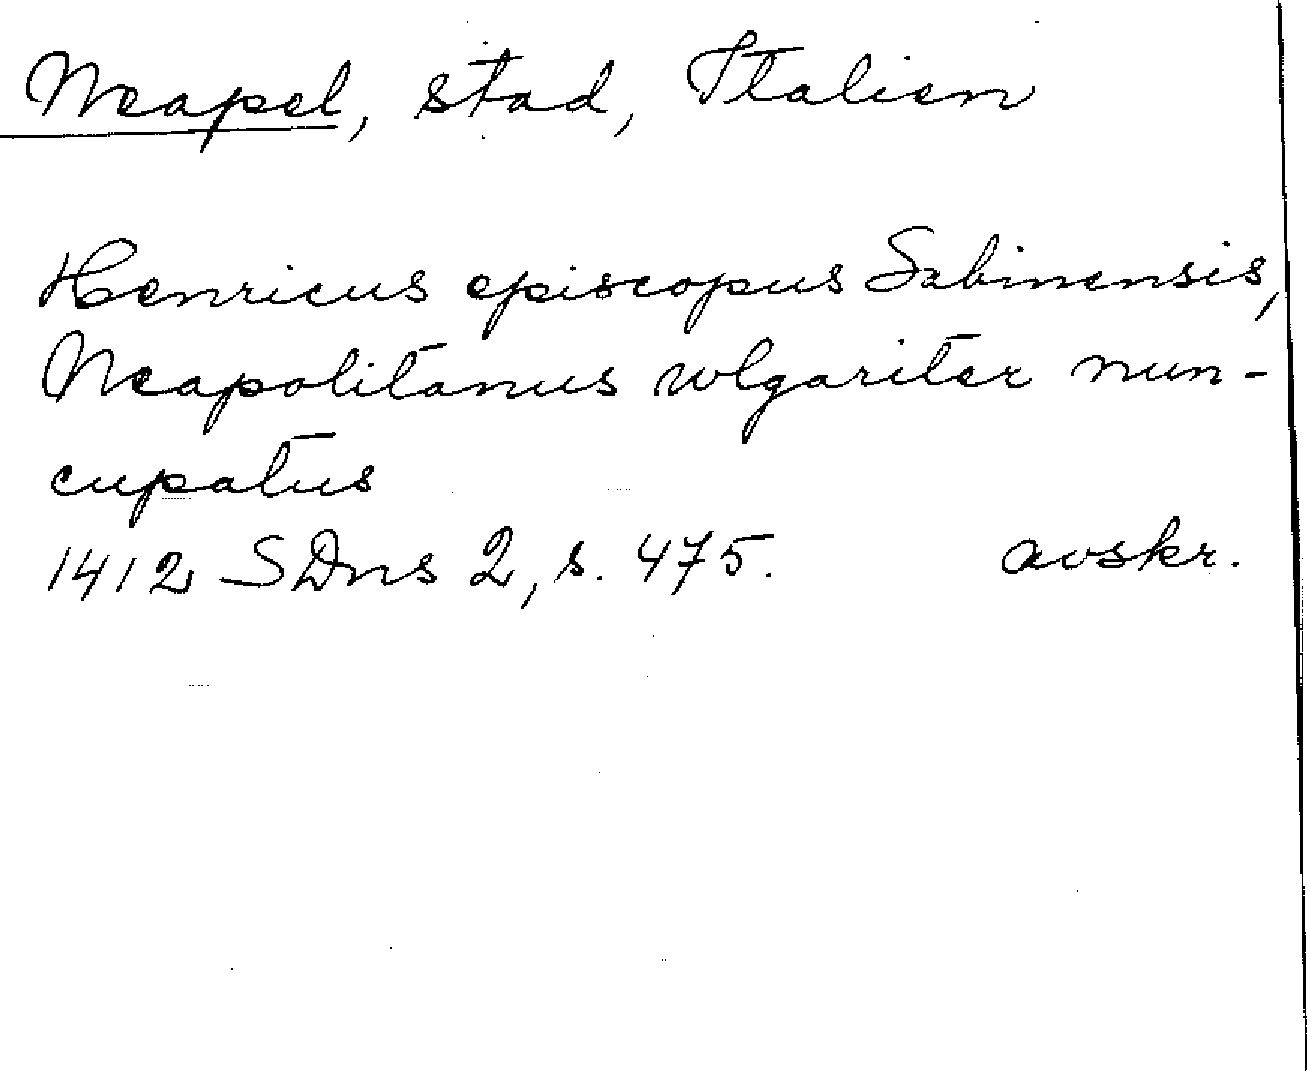 Neapel, stad, Italien
Henricus episcopus Sabinensis,
Neapolitanus wlgariter nun-
cupatus
1412 SDns 2, s. 475. avskr.